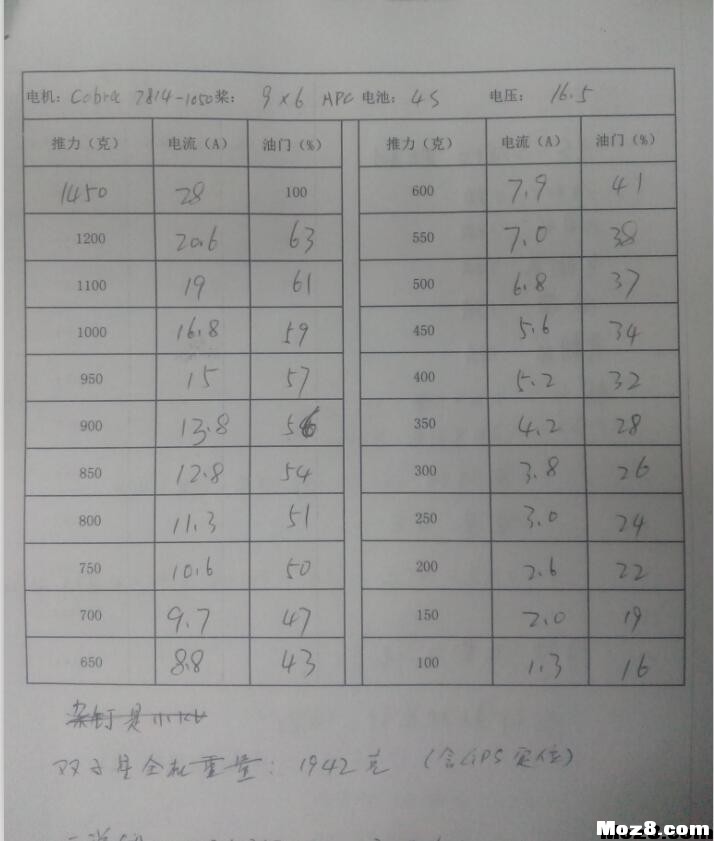 电机: Cobra 2814-1050 桨: 9×6 APC 电池: 4S 电压: 16.5
推力（克） 电流（A） 油门（%） 推力（克） 电流（A） 油门（%）
1450 28 100 600 7.9 41
1200 20.6 63 550 7.0 38
1100 19 61 500 6.8 37
1000 16.8 59 450 5.6 34
950 15 57 400 5.2 32
900 13.8 56 350 4.2 28
850 12.8 54 300 3.8 26
800 11.3 51 250 3.0 24
750 10.6 50 200 2.6 22
700 9.7 47 150 2.0 19
650 8.8 43 100 1.3 16
双子星全机重量: 1942克 (含GPS定位)
Moz8.com